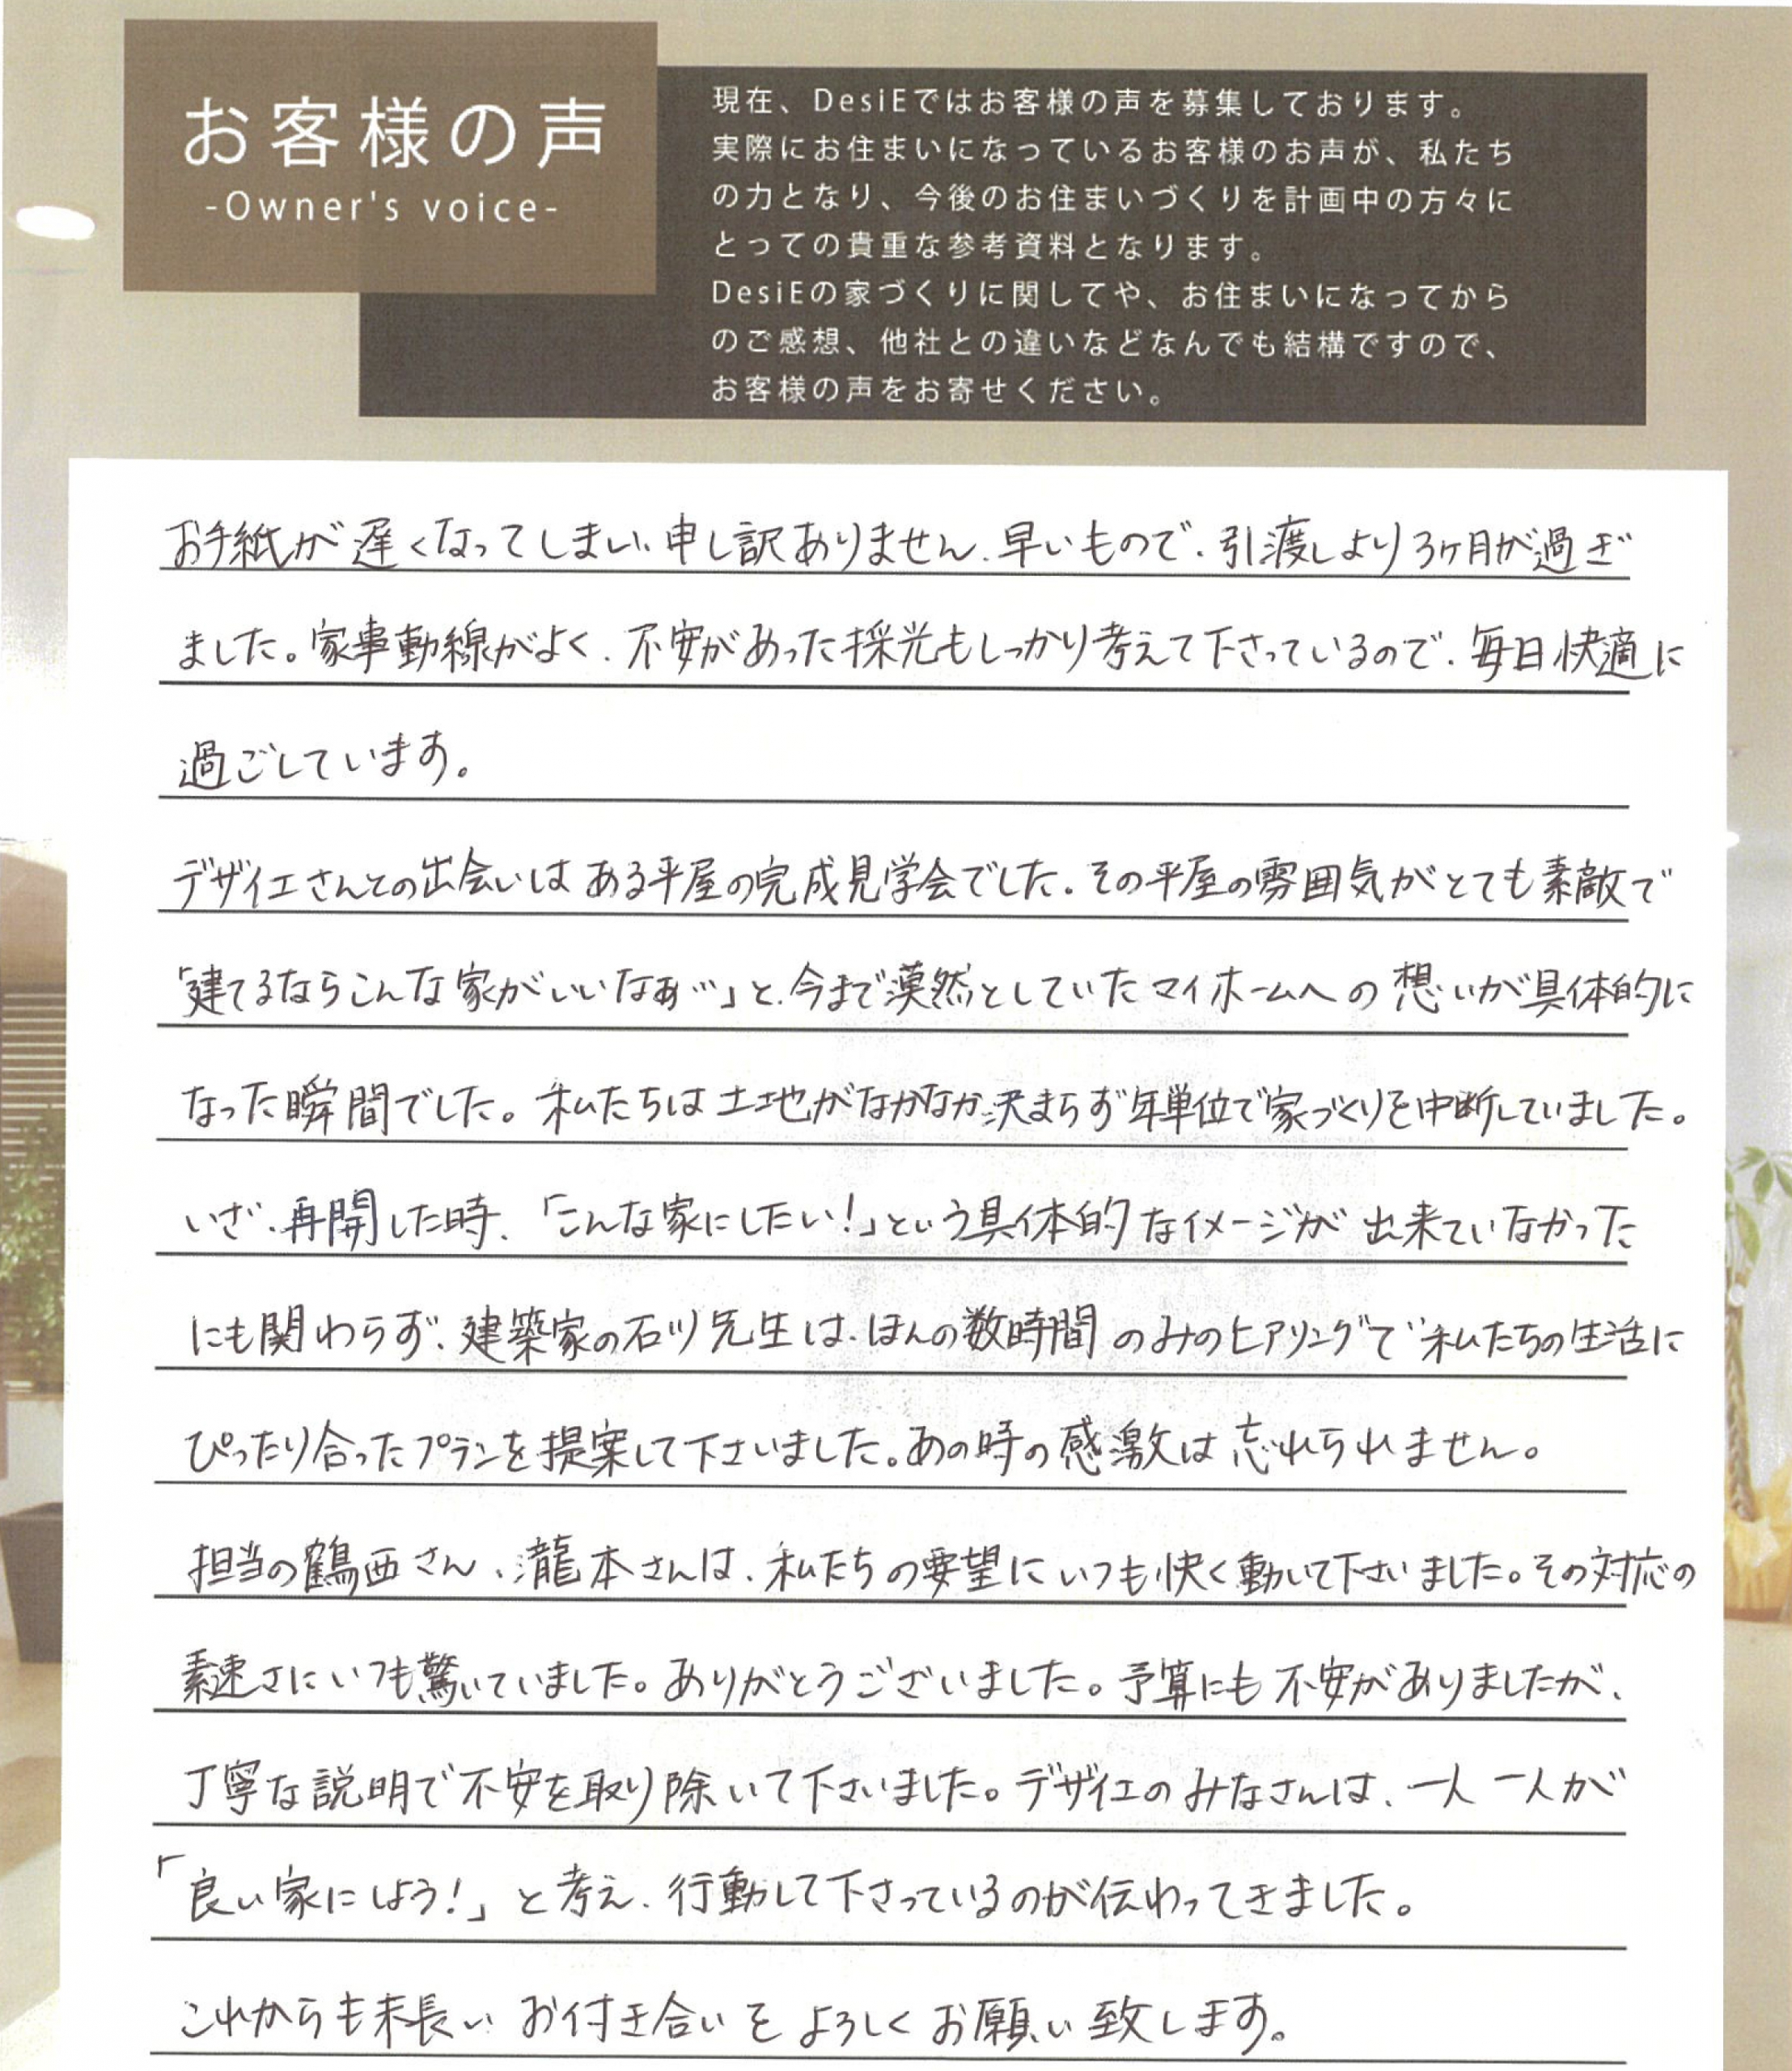 お客様の声
-Owner's voice-
現在、DesiEではお客様の声を募集しております。
実際にお住まいになっているお客様のお声が、私たち
の力となり、今後のお住まいづくりを計画中の方々に
とっての貴重な参考資料となります。
DesiEの家づくりに関してや、お住まいになってから
のご感想、他社との違いなどなんでも結構ですので、
お客様の声をお寄せください。
お手紙が遅くなってしまい、申し訳ありません。早いもので、引渡しより3ヶ月が過ぎ
ました。家事動線がよく、不安があった採光もしっかり考えて下さっているので、毎日快適に
過ごしています。
デザイエさんとの出会いはある平屋の完成見学会でした。その平屋の雰囲気がとても素敵で
「建てるならこんな家がいいなぁ…」と、今まで漠然としていたマイホームへの想いが具体的に
なった瞬間でした。私たちは土地がなかなか決まらず年単位で家づくりを中断していました。
いざ、再開した時、「こんな家にしたい!」という具体的なイメージが出来ていなかった
にも関わらず、建築家の石ツ先生は、ほんの数時間のみのヒアリングで私たちの生活に
ぴったり合ったプランを提案して下さいました。あの時の感激は忘れられません。
担当の鶴西さん、瀧本さんは、私たちの要望にいつも快く動いて下さいました。その対応の
素速さにいつも驚いていました。ありがとうございました。予算にも不安がありましたが、
丁寧な説明で不安を取り除いて下さいました。デザイエのみなさんは、一人一人が
「良い家にしよう!」と考え、行動して下さっているのが伝わってきました。
これからも末長いお付き合いをよろしくお願い致します。